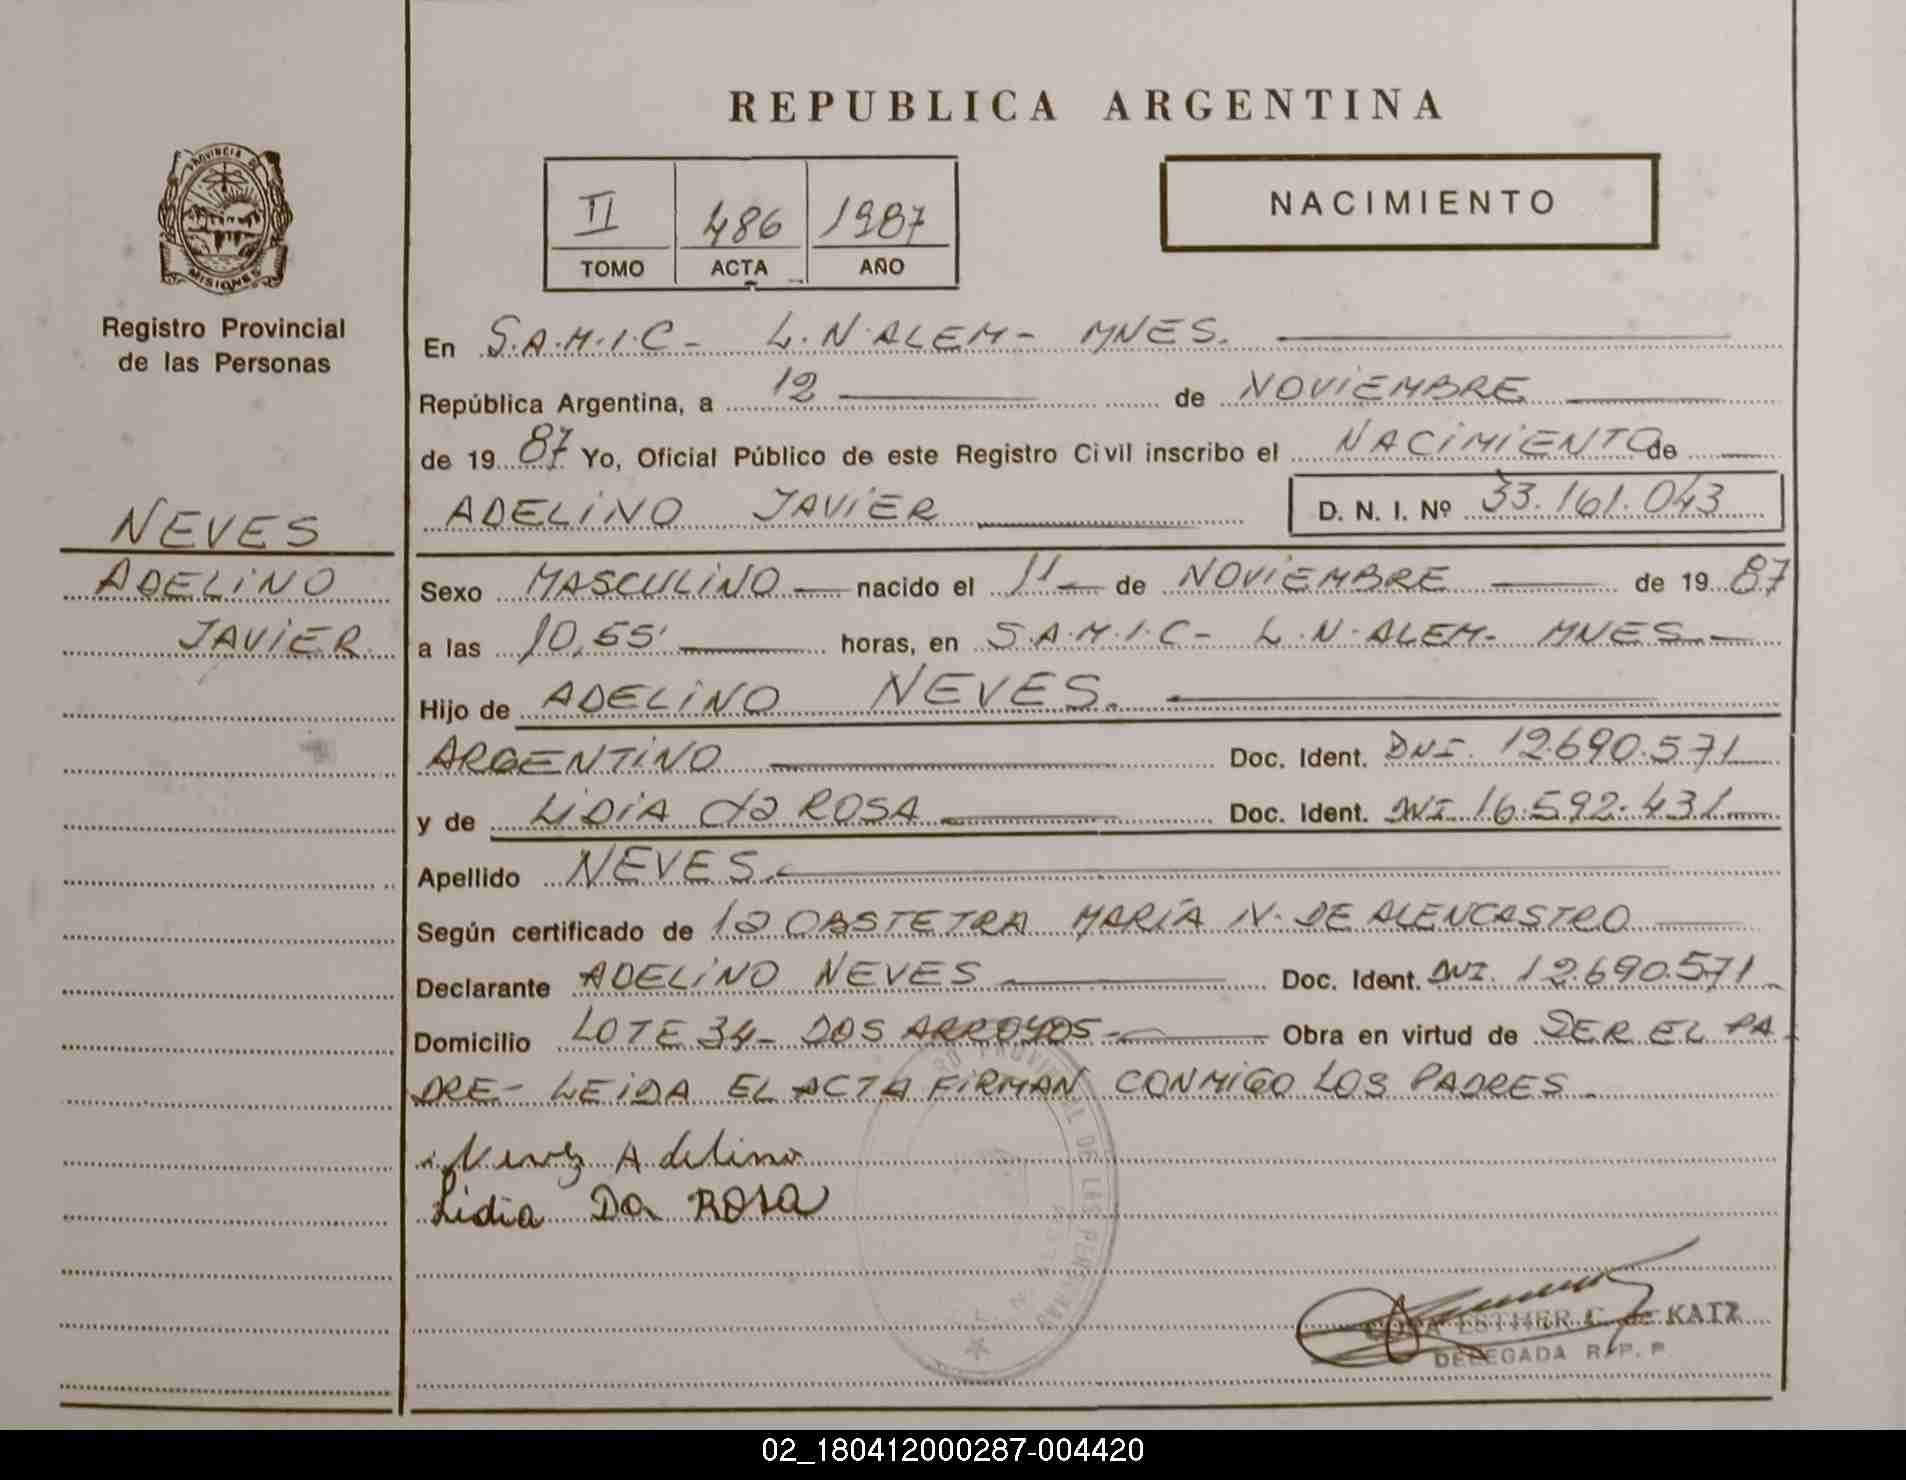 REPUBLICA ARGENTINA
PROVINCIA DE
MISIONES
Registro Provincial
de las Personas
NEVES
ADELINO
JAVIER
II 486 1987
TOMO ACTA AÑO
NACIMIENTO
En S.A.M.I.C- L.N.ALEM- MNES.
República Argentina, a 12 de NOVIEMBRE
de 1987 Yo, Oficial Público de este Registro Civil inscribo el NACIMIENTO de
ADELINO JAVIER D. N. I. Nº 33.161.043
Sexo MASCULINO nacido el 11 de NOVIEMBRE de 1987
a las 10,55' horas, en S.A.M.I.C- L.N.ALEM- MNES
Hijo de ADELINO NEVES.
ARGENTINO Doc. Ident. DNI. 12.690.571
y de LIDIA da ROSA Doc. Ident. DNI 16.592.431
Apellido NEVES
Según certificado de la OBSTETRA MARÍA N. DE ALENCASTRO
Declarante ADELINO NEVES Doc. Ident. DNI. 12.690.571
Domicilio LOTE 34- DOS ARROYOS- Obra en virtud de SER EL PA-
DRE- LEIDA EL ACTA FIRMAN CONMIGO LOS PADRES
Adelino
Lidia Da ROSA
PROVINCIAL DE LAS PERSONAS
ESTHER C. de KATZ
DELEGADA R. P. P.
02_180412000287-004420